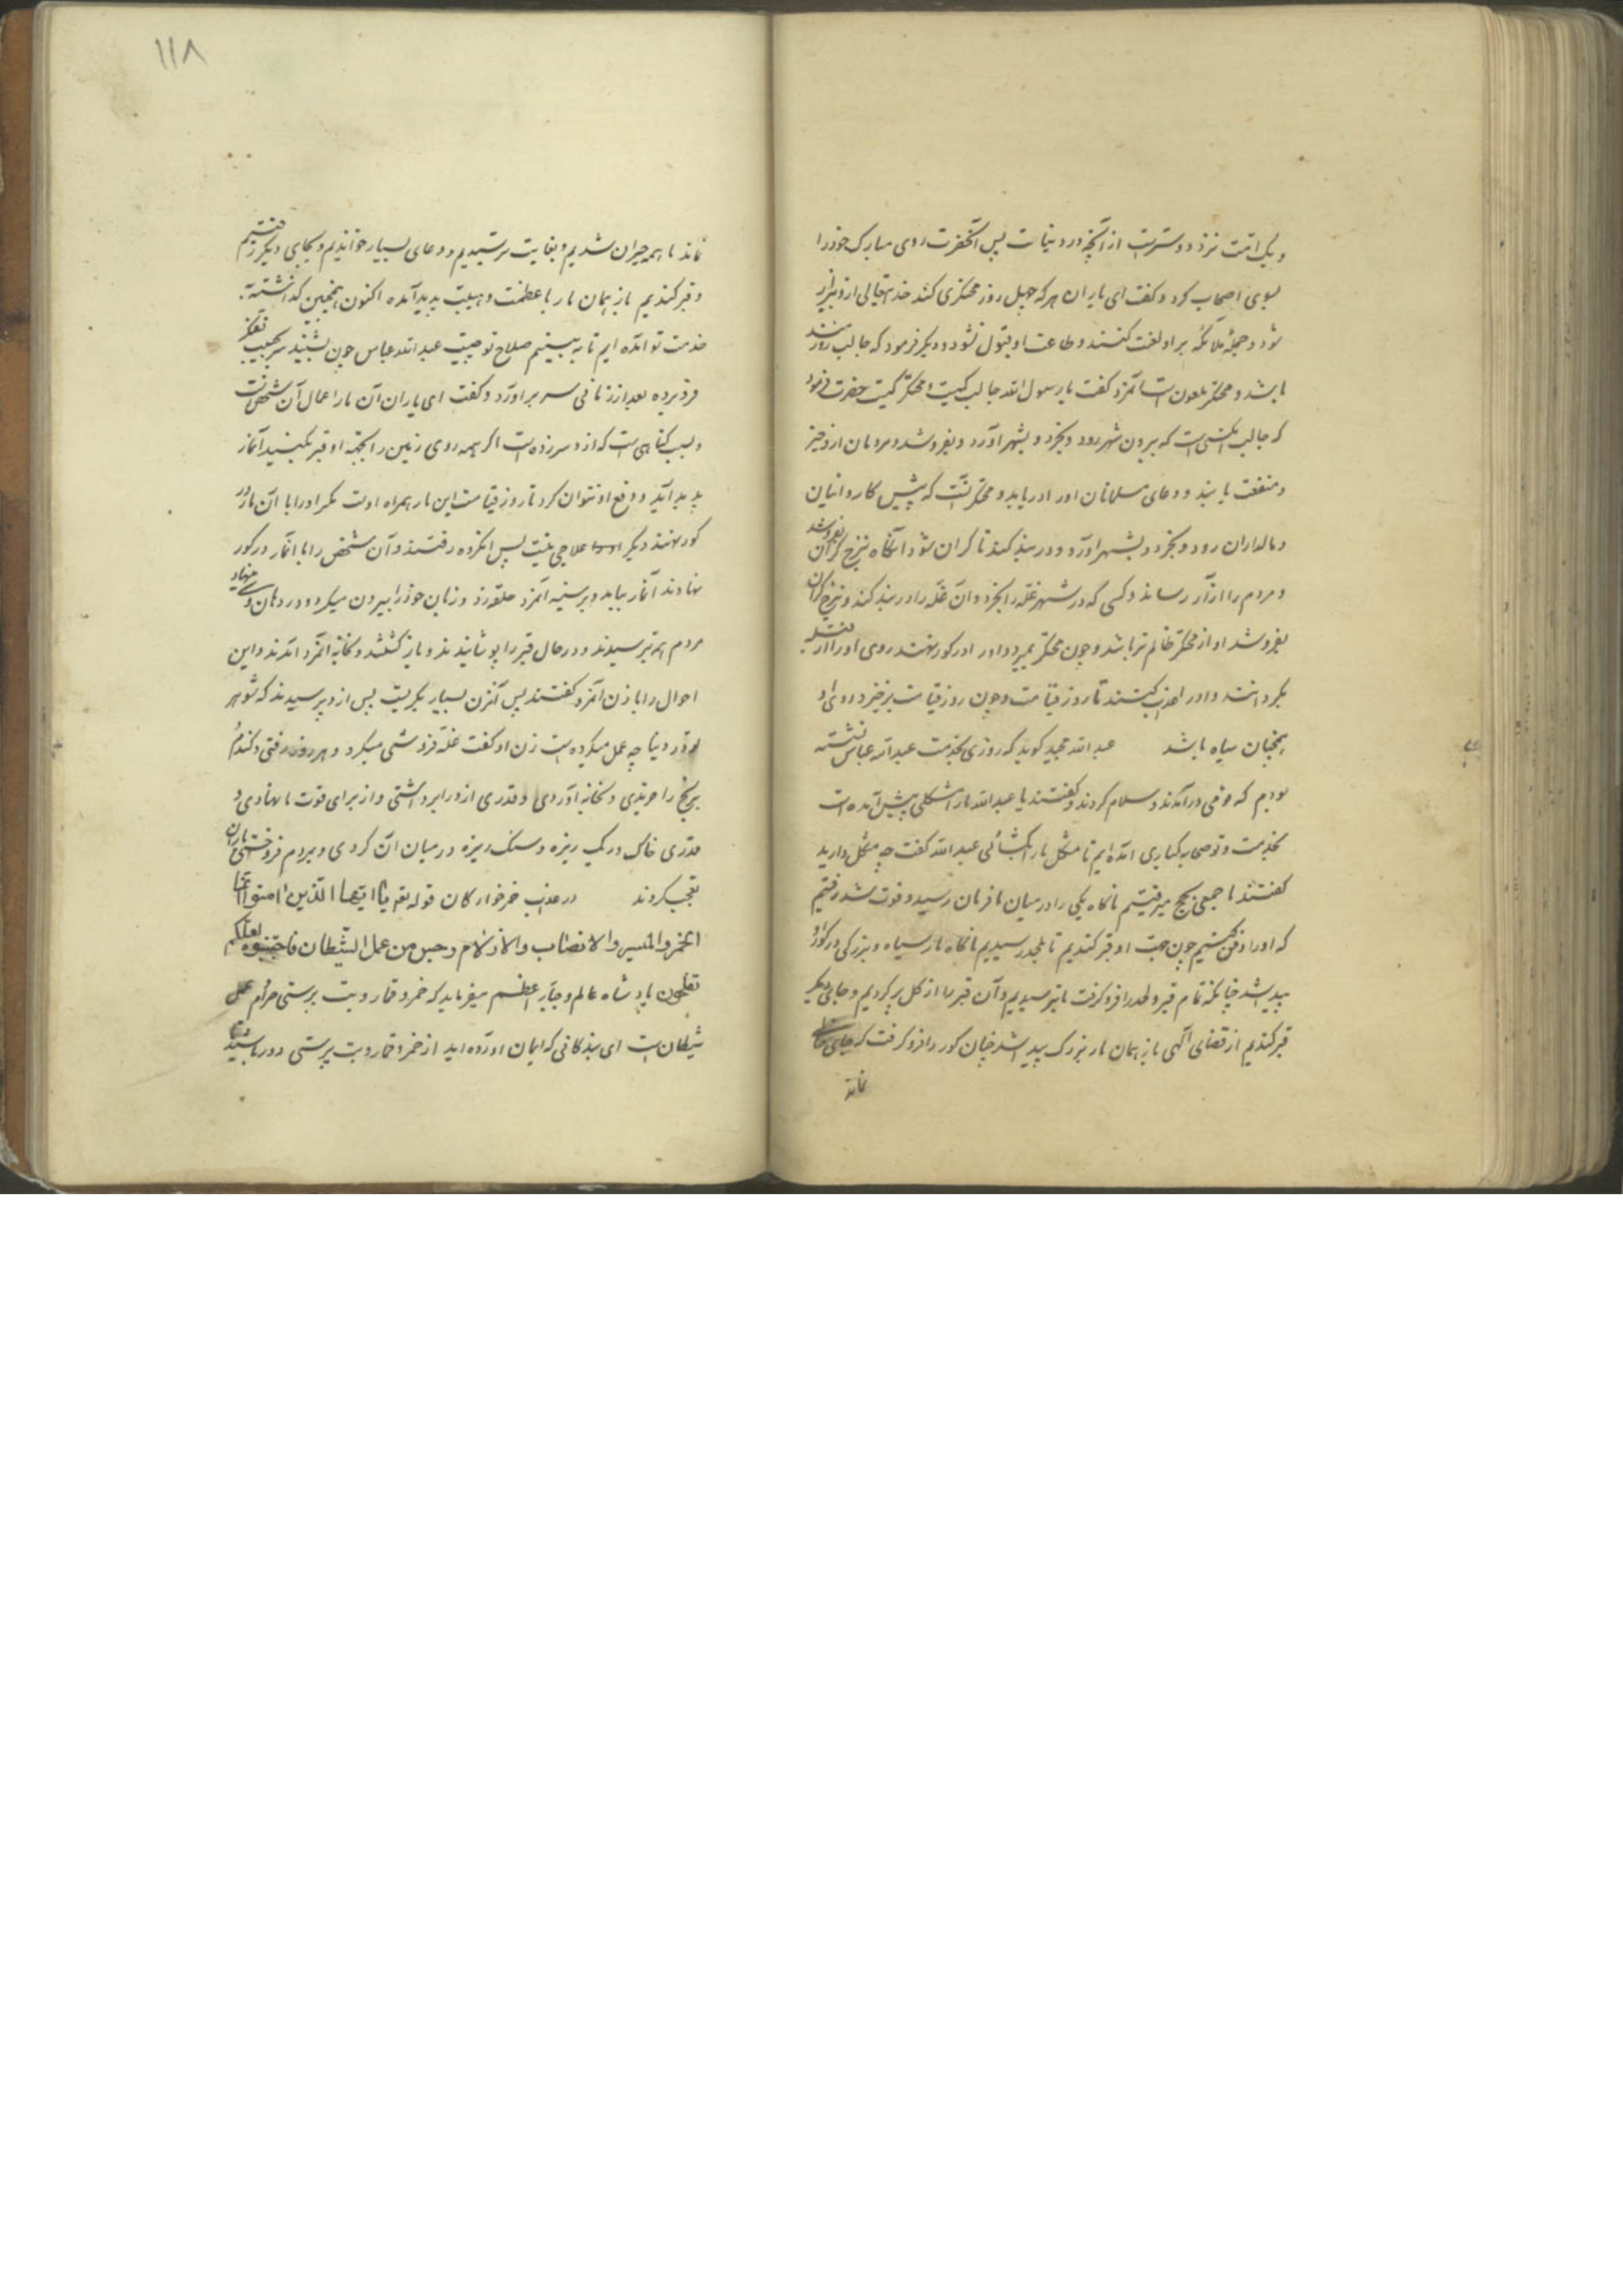 و یک امت نزد و دوسترست از آنچه در دنیاست پس آنحضرت روی مبارک خود را
بسوی اصحاب کرد و کفت ای یاران هر که چهل روز محتکری کند خدایتعالی ازو بیزار
شود و جملهٔ ملائکه بر او لعنت کنند و طاعت او قبول نشود و دیکر فرمود که جالب روزیمند
باشد و محتکر ملعون است آنمرد کفت یا رسول الله جالب کیست و محتکر کیست حضرت فرمود
که جالب آنکسی است که بیرون شهر رود و بخرد و بشهر آورد و بفروشد و مردمان ازو خیر
و منفعت یابند و دعای مسلمانان او را دریابد و محتکر آنست که پیش کاروانیان
و مالداران رود و بخرد و بشهر آورد و در بند کند تا کران شود آنکاه بنرخ کران بفروشد
و مردم را آزار رساند و کسی که در شهر غله را بخرد و آن غله را در بند کند و بنرخ کران
بفروشد او از محتکر ظالم تر باشد و چون محتکر بمیرد و او را در کور نهند روی او را از قبله
بکردانند و او را عذاب کنند تا روز قیامت و چون روز قیامت برخیزد روی او
همچنان سیاه باشد عبد الله مجید کوید که روزی بخدمت عبد الله عباس نشسته
بودم که قومی درآمدند و سلام کردند و کفتند یا عبد الله ما را مشکلی پیش آمده است
بخدمت تو صحابه کباری آمده ایم تا مشکل ما را بکشائی عبد الله کفت چه مشکل دارید
کفتند ما جمعی بحج میرفتیم ناکاه یکی را در میان ما فرمان رسید و فوت شد رفتیم
که او را دفن کنیم چون جهت او قبر کندیم تا بلحد رسیدیم ناکاه مار سیاه و بزرکی در کور او
پیدا شد چنانکه تمام قبر و لحد را فرو کرفت ما بترسیدیم و آن قبر را از کل پر کردیم و جای دیکر
قبر کندیم از قضای الهی باز همان مار بزرک پیدا شد چنان کور را فرو کرفت که جای خالی
نماند
۱۱۸
نماند ما همه حیران شدیم و بغایت ترسیدیم و دعای بسیار خواندیم و بجای دیکر رفتیم
و قبر کندیم باز همان مار با عظمت و هیبت پدید آمده اکنون همچنین کذاشته
خدمت تو آمده ایم تا به بینیم صلاح تو چیست عبد الله عباس چون بشنید سر بجیب تفکر
فرو برده بعد از زمانی سر برآورد و کفت ای یاران آن مار اعمال آن شخص است
و بسبب کناهی است که ازو سر زده است اکر همه روی زمین را بجهة او قبر بکنید آنمار
پدید آید و دفع او نتوان کرد تا روز قیامت این مار همراه اوست مکر او را با آن مار در
کور نهند دیکر علاجی نیست پس آنکروه رفتند و آن شخص را با آنمار در کور
نهادند آنمار بیامد و بر سینه آنمرد حلقه زد و زبان خود را بیرون میکرد و در دهان وی مینهاد
مردم همه بترسیدند و در حال قبر را پوشانیدند و باز کشتند و بخانه آنمرد آمدند و این
احوال را با زن آنمرد کفتند پس آنزن بسیار بکریست پس ازو پرسیدند که شوهر
تو در دنیا چه عمل میکرده است زن او کفت غله فروشی میکرد و هر روز رفتی و کندم
برنج را خریدی و بخانه آوردی و قدری ازو را برداشتی و از برای قوت ما نهادی و
قدری خاک و ریک ریزه و سنک ریزه در میان آن کردی و بمردم فروختی یاران
تعجب کردند در عذاب خمرخوارکان قوله تعم یا ایها الذین امنوا انما
الخمر والمیسر والانصاب والازلام رجس من عمل الشیطان فاجتنبوه لعلکم
تفلحون پادشاه عالم و جبار اعظم میفرماید که خمر و قمار و بت پرستی حرام عمل
شیطان است ای بندکانی که ایمان آورده اید از خمر و قمار و بت پرستی دور باشید